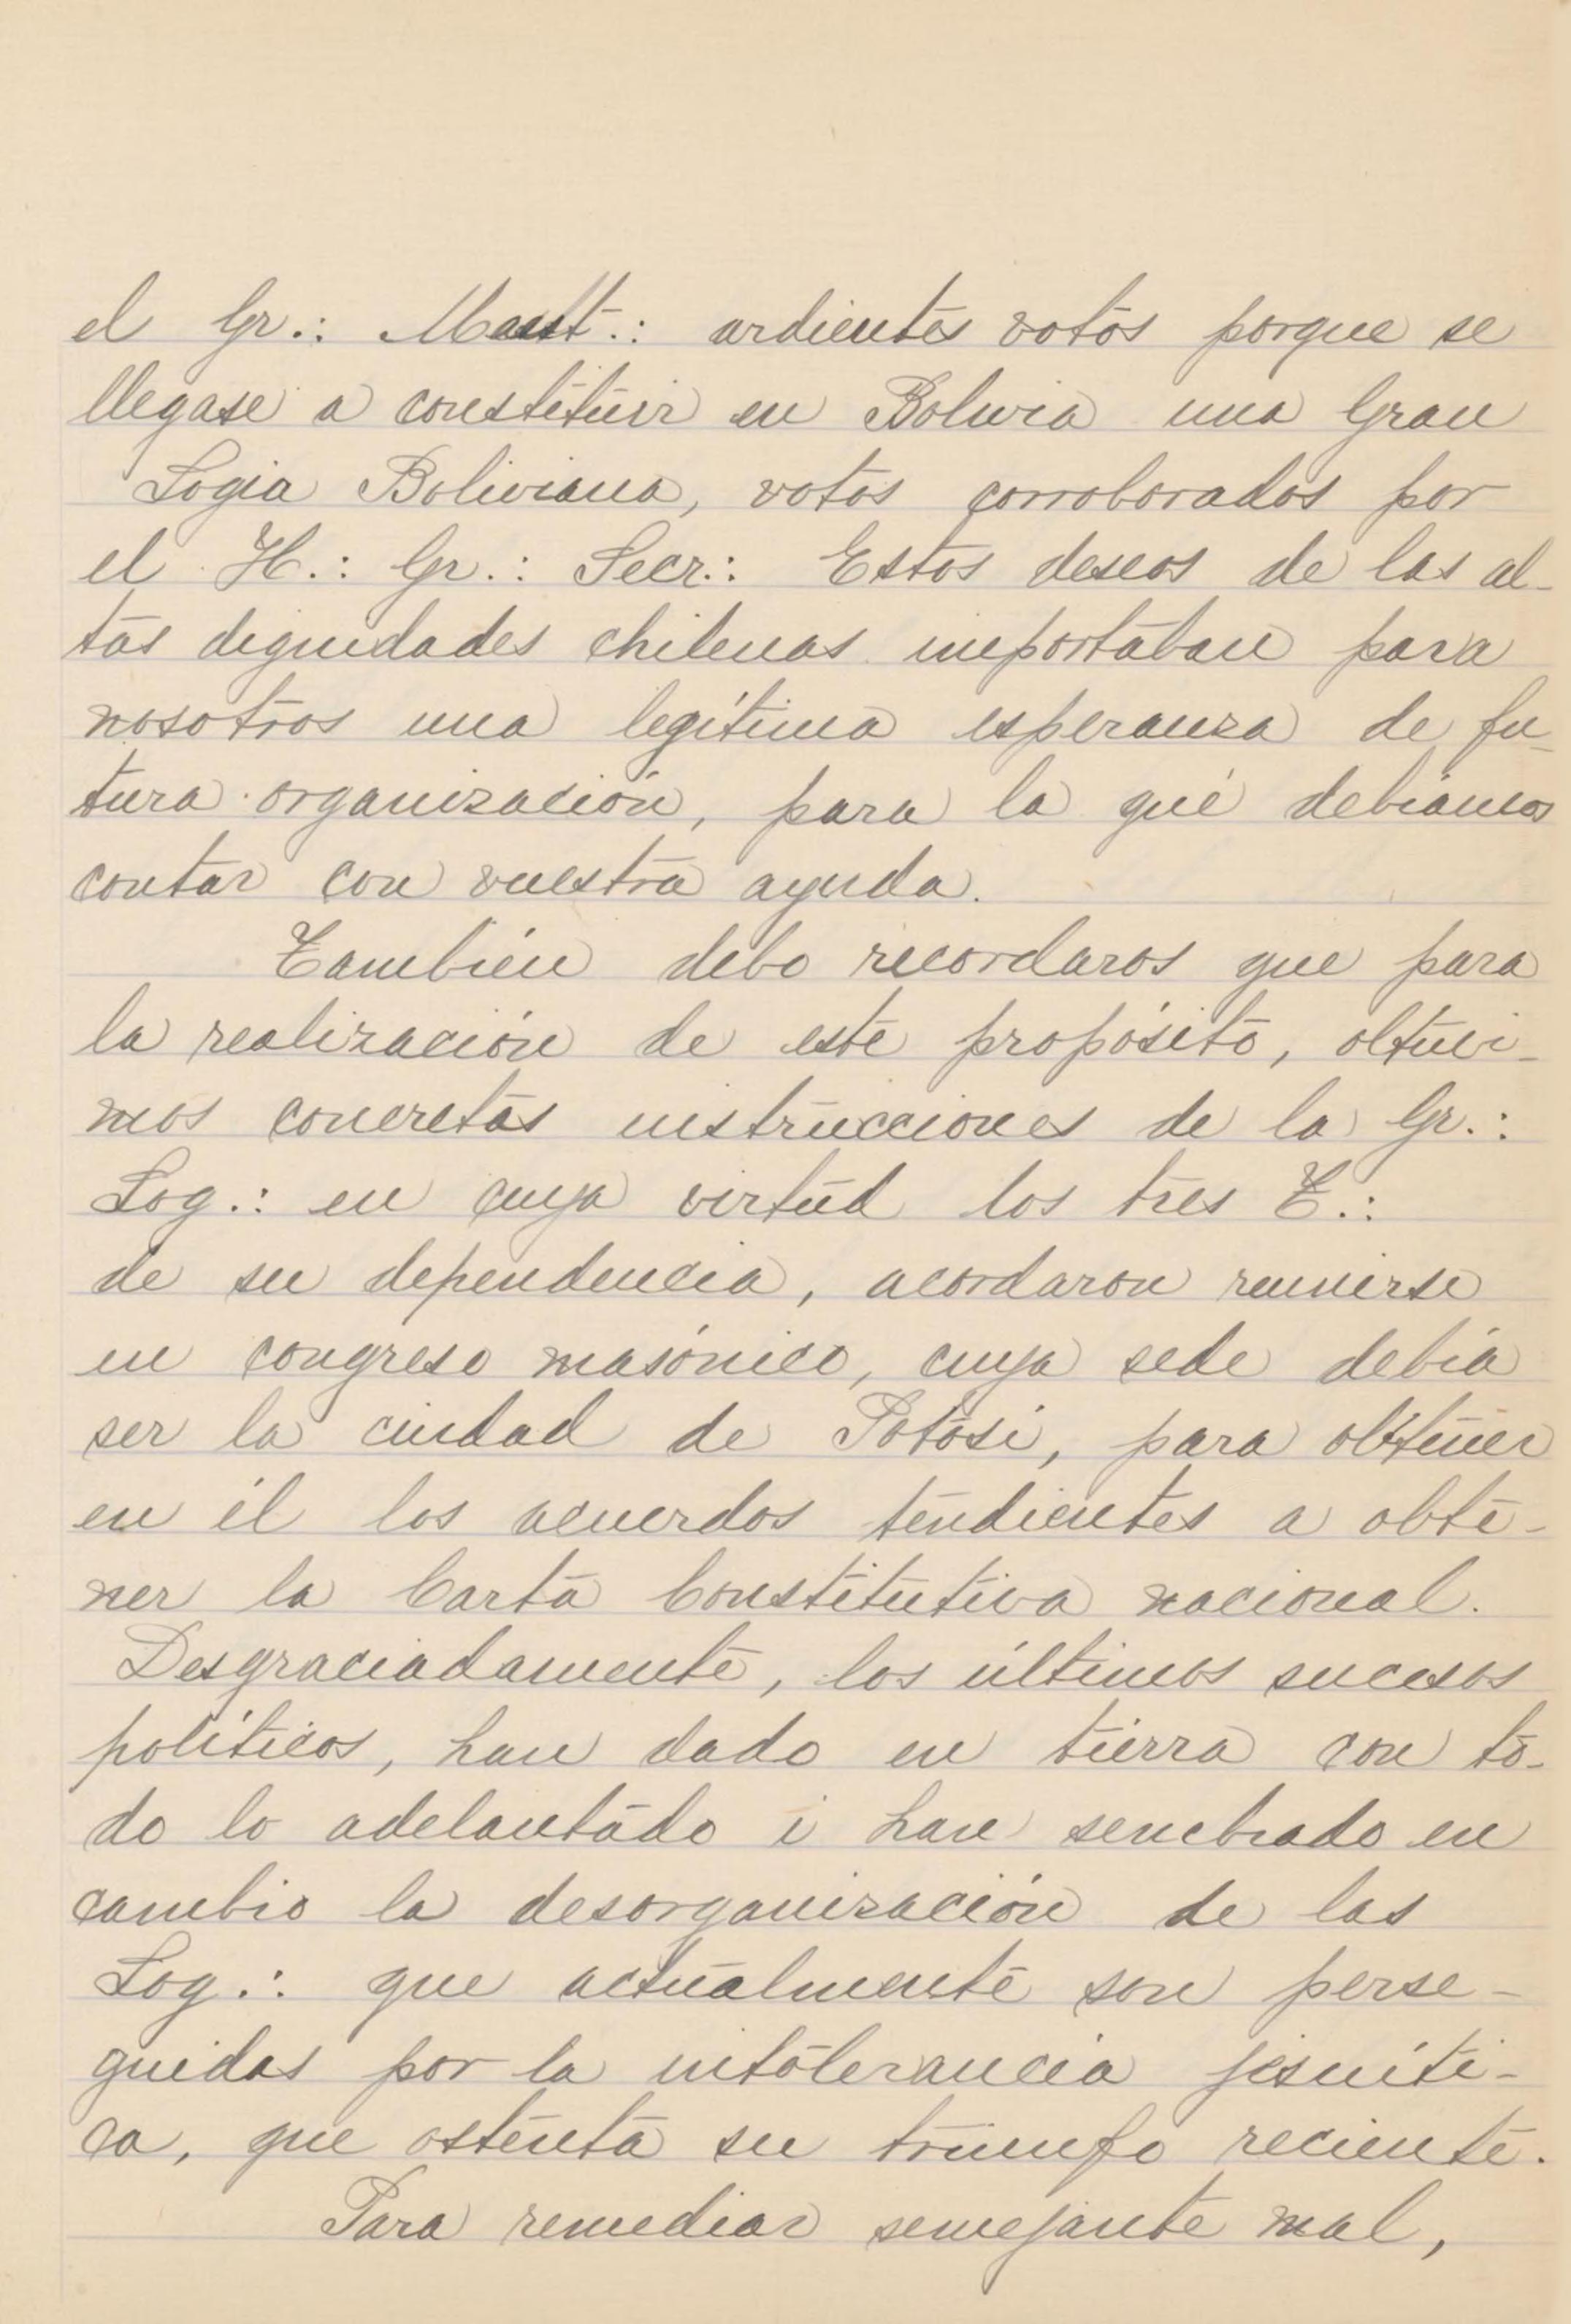 el Gr.: Maest.: ardientes votos porque se
llegase a constituir en Bolivia una Gran
Logia Boliviana, votos corroborados por
el H.: Gr.: Secr.: Estos deseos de las al-
tas dignidades chilenas importaban para
nosotros una legítima esperanza de fu-
tura organización, para la que debíamos
contar con vuestra ayuda.
También debo recordaros que para
la realización de este propósito, obtuvi-
mos concretas instrucciones de la Gr.:
Log.: en cuya virtud los tres T.:
de su dependencia, acordaron reunirse
en congreso masónico, cuya sede debía
ser la ciudad de Potosí, para obtener
en él los acuerdos tendientes a obte-
ner la Carta Constitutiva nacional.
Desgraciadamente, los últimos sucesos
políticos, han dado en tierra con to-
do lo adelantado i han sembrado en
cambio la desorganización de las
Log.: que actualmente son perse-
guidas por la intolerancia jesuíti-
ca, que ostenta su triunfo reciente.
Para remediar semejante mal,